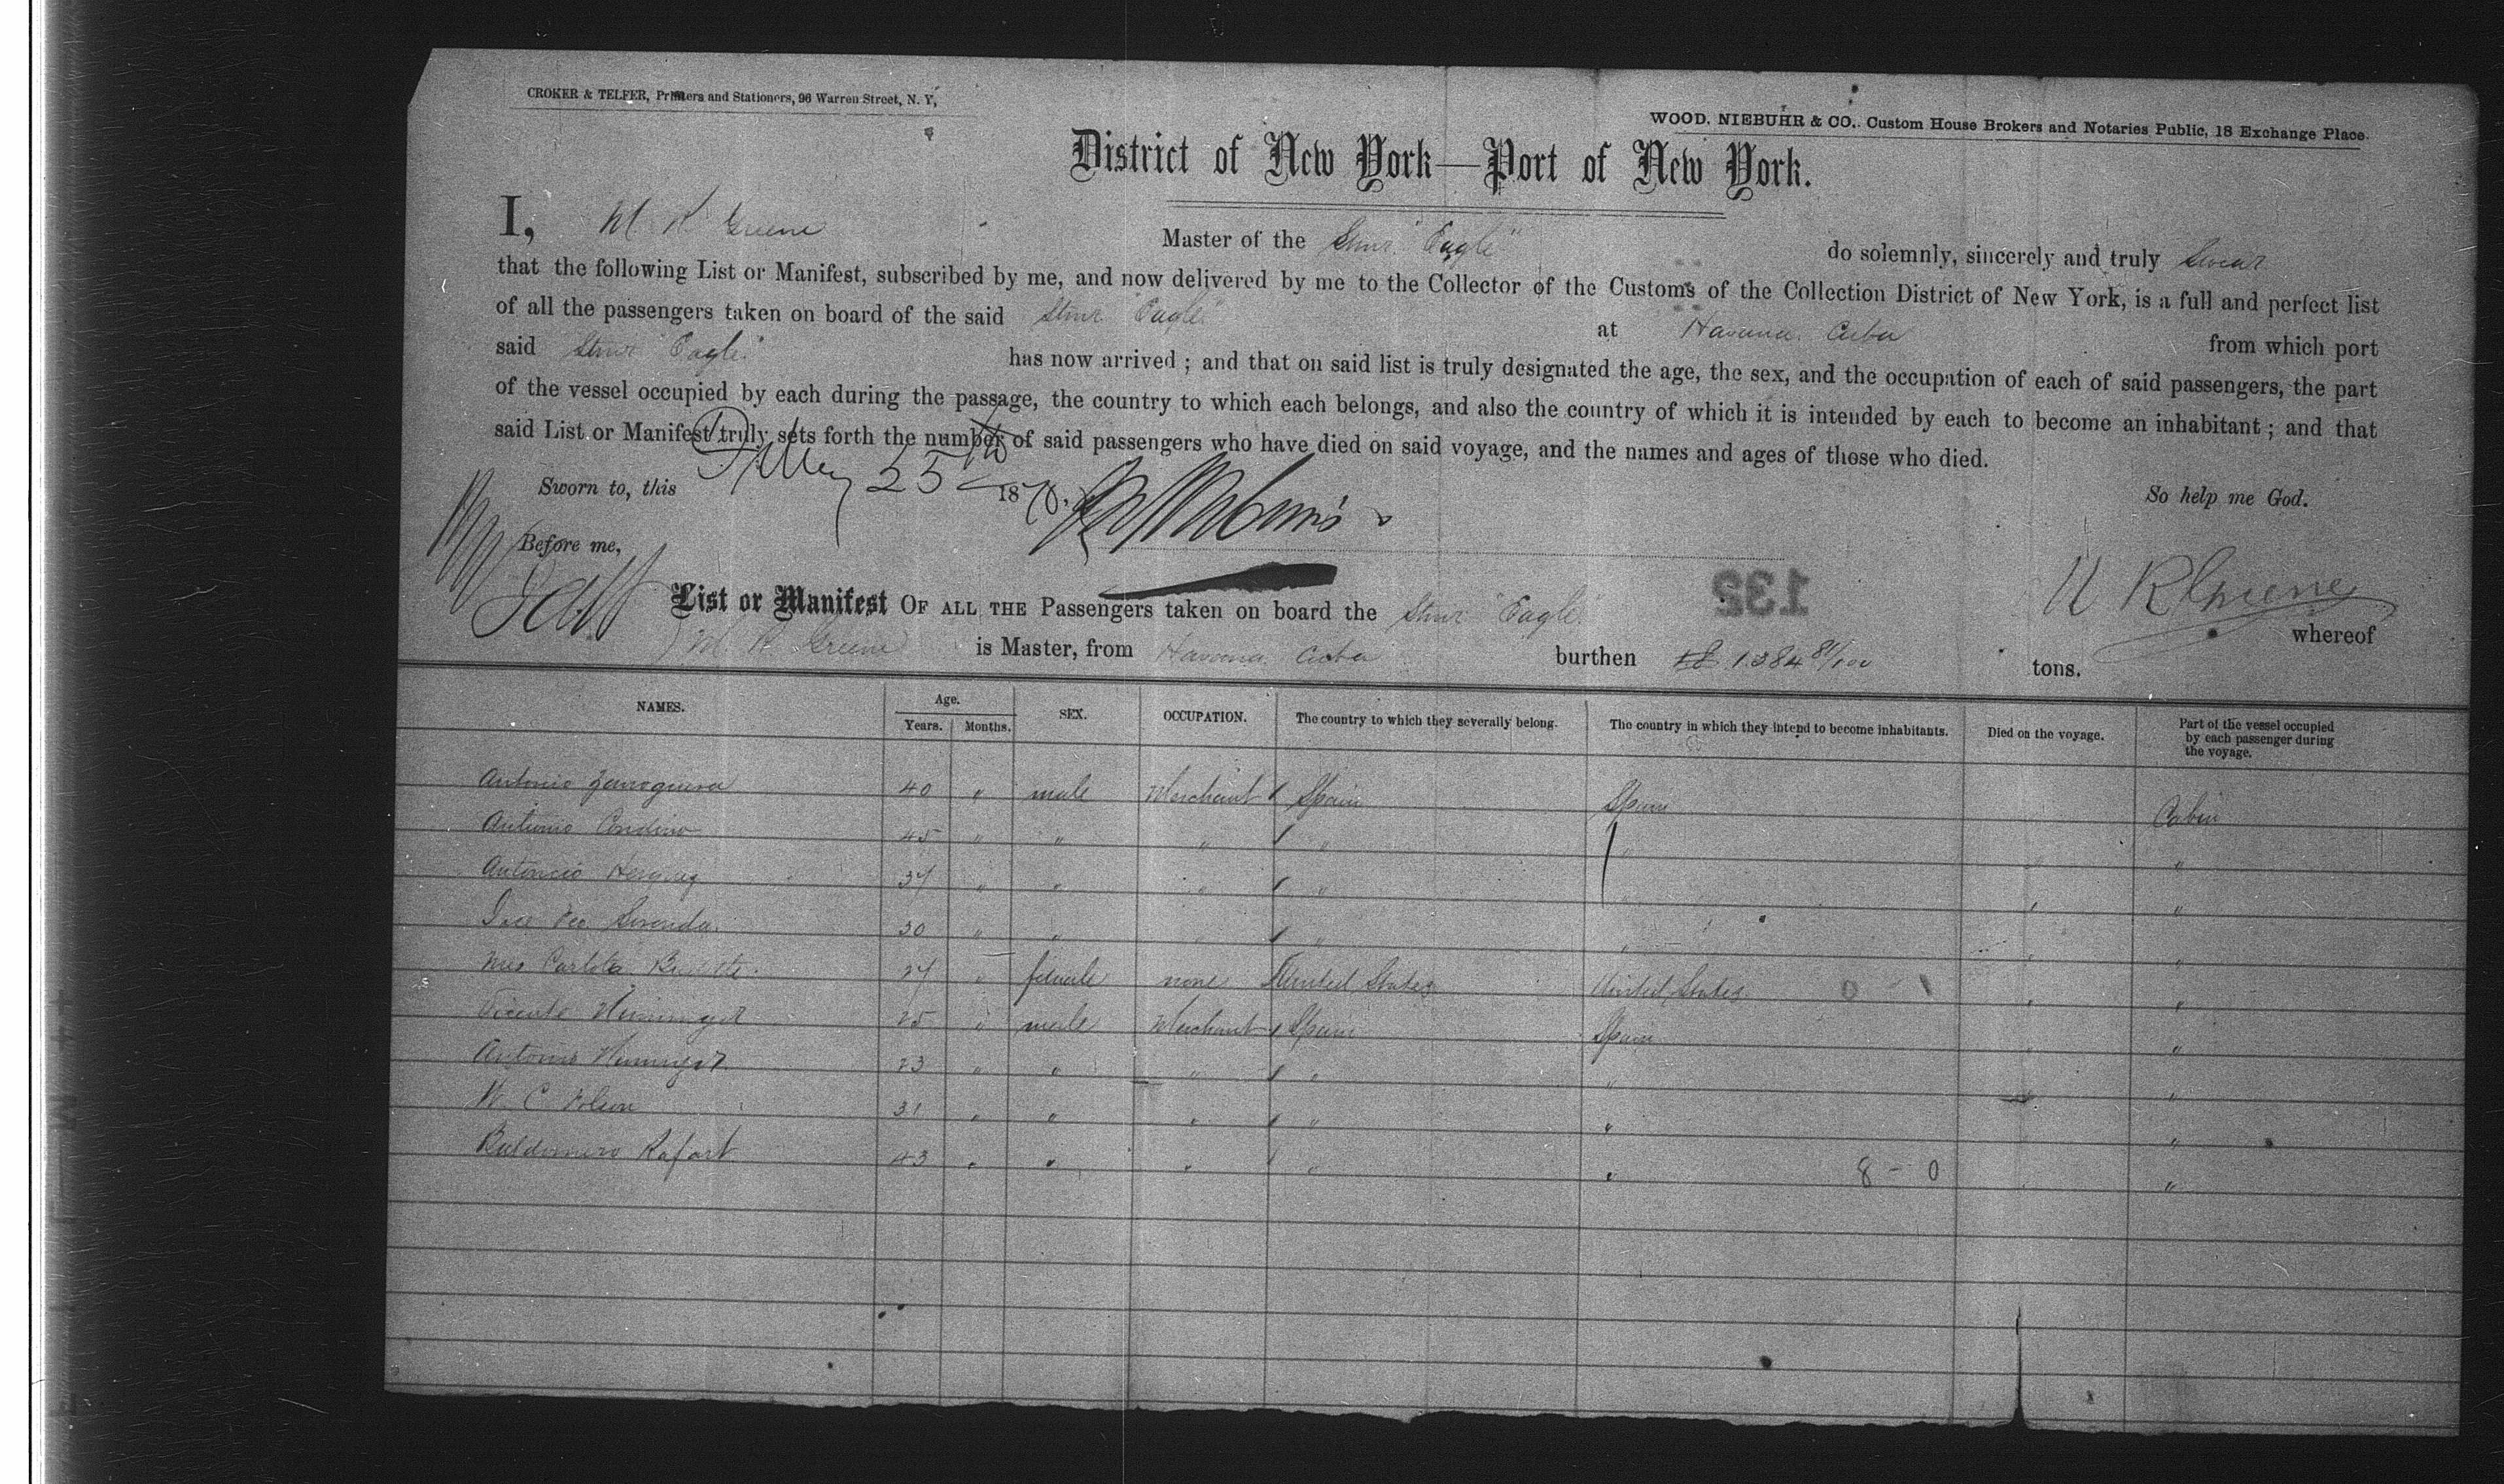 CROKER & TELFER, Printers and Stationers, 96 Warren Street, N. Y,
WOOD, NIEBUHR & CO., Custom House Brokers and Notaries Public, 18 Exchange Place.
District of New York—Port of New York.
I, M R Greene Master of the Stmr "Eagle" do solemnly, sincerely and truly Swear
that the following List or Manifest, subscribed by me, and now delivered by me to the Collector of the Customs of the Collection District of New York, is a full and perfect list
of all the passengers taken on board of the said Stmr "Eagle" at Havana Cuba from which port
said Stmr "Eagle" has now arrived; and that on said list is truly designated the age, the sex, and the occupation of each of said passengers, the part
of the vessel occupied by each during the passage, the country to which each belongs, and also the country of which it is intended by each to become an inhabitant; and that
said List or Manifest truly sets forth the number of said passengers who have died on said voyage, and the names and ages of those who died.
Sworn to, this 25th 18 So help me God.
Before me,
M R Greene
132
List or Manifest OF ALL THE Passengers taken on board the Stmr "Eagle" whereof
M. R. Greene is Master, from Havana Cuba burthen 1384 81/100 tons.
NAMES. Age. Years. Months. SEX. OCCUPATION. The country to which they severally belong. The country in which they intend to become inhabitants. Died on the voyage. Part of the vessel occupied by each passenger during the voyage.
Antonio 40 " male Merchant Spain Spain Cabin
Antonio 45 " " " " " " "
Antonio 37 " " " " " " "
30 " " " " " " "
Mrs Carlota 27 " female none United States United States 0 1 " "
Vicente 25 " male Merchant Spain Spain " "
Antonio 23 " " " " " "
W. C 31 " " " " " "
Baldomero Rafart 43 " " " " " 8 - 0 "